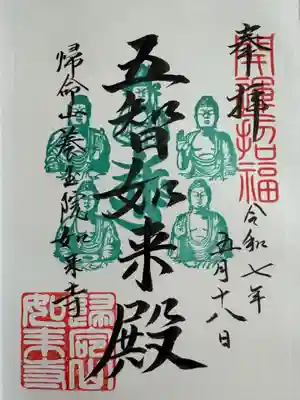 奉拝
開運招福
令和七年
五月十八日
五智如来殿
帰命山養玉院如来寺
帰命山
如来寺